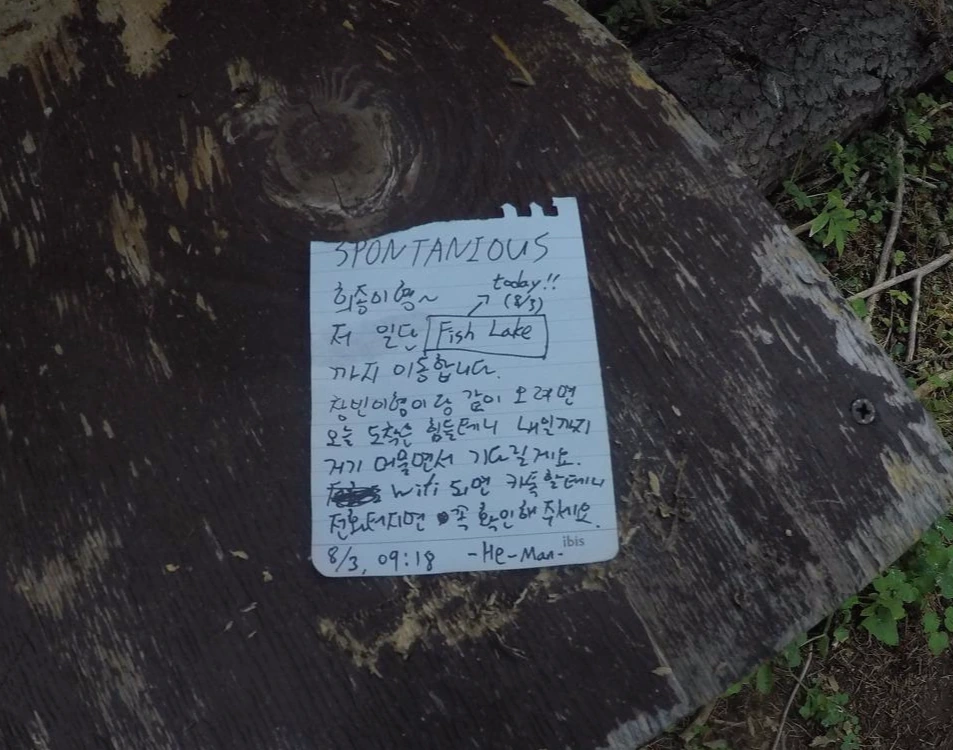 SPONTANIOUS
희종이형~ today!!
(8/3)
저 일단 Fish Lake
까지 이동합니다.
창빈이형이랑 같이 오려면
오늘 도착은 힘들테니 내일까지
거기 머물면서 기다릴게요.
wifi 되면 카톡할테니
전화터지면 꼭 확인해 주세요.
8/3, 09:18 -He-Man-
ibis